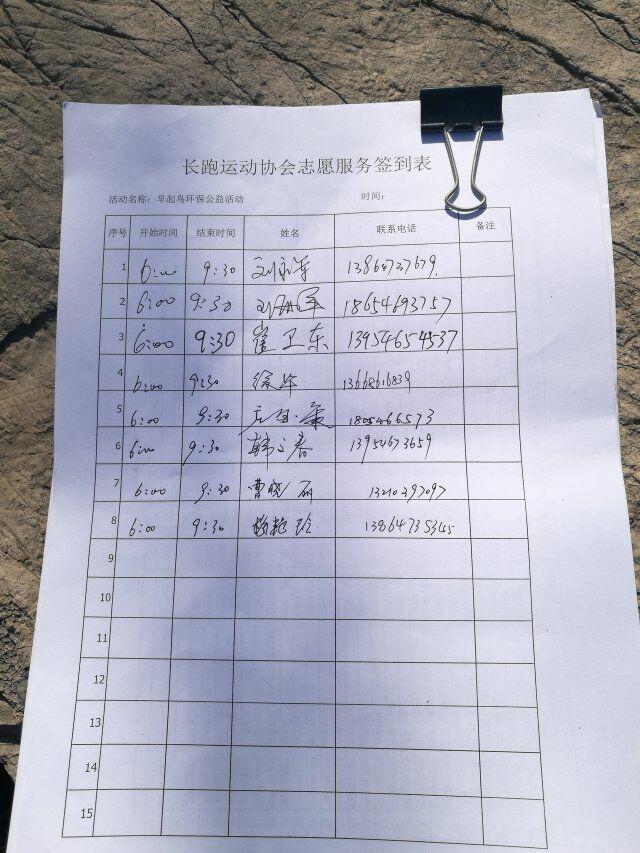 长跑运动协会志愿服务签到表
活动名称：早起鸟环保公益活动 时间：
序号 开始时间 结束时间 姓名 联系电话 备注
1 6:00 9:30 13864727679
2 6:00 9:30 18654693757
3 6:00 9:30 崔卫东 13954654537
4 6:00 9:30 徐华 13668616839
5 6:00 9:30
6 6:00 9:30 韩文春 13954673659
7 6:00 9:30 曹晓丽
8 6:00 9:30 杨艳玲 13864735345
9
10
11
12
13
14
15